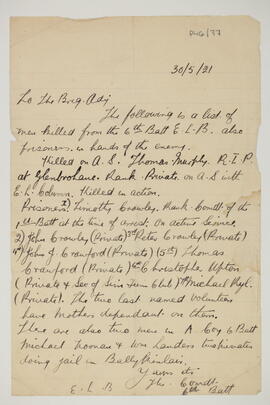 P48/77
30/5/21
To The Brig. Adj
The following is a list of
men killed from the 6th Batt E.L.B. also
prisoners in hands of the enemy.
Killed on A.S. Thomas Murphy. R.I.P
at Glenbrohane. Rank. Private. on A.S. with
E.L. Column. Killed in action.
Prisoners 1) Timothy Crowley. Rank. Comdt of the
1st Batt at the time of arrest. On active Service
2) John Crowley (Private) 3rd Peter Crowley (Private)
4th) John J. Crawford (Private) (5th) Thomas
Crawford (Private) 6th Christopher Upton
(Private & Sec of Sinn Fein Club) 7th Michael
(Private). The two last named Volunteers
have Mothers dependant on them.
There are also two men in A Coy 6 Batt
Michael Noonan & Wm Landers two privates
doing jail in Ballykinlar.
Yours etc
The Comdt.
E.L.B 6th Batt